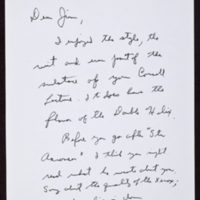 Dear Jim,
I enjoyed the style, the
wit and even part of the
substance of your Cornell
Lecture. It does have the
flavor of the Double Helix.
Before you go after "The
American" I think you might
read what he wrote about you.
Sorry about the quality of the Xerox;